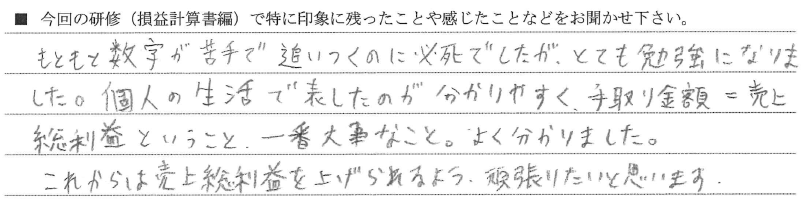 ■ 今回の研修（損益計算書編）で特に印象に残ったことや感じたことなどをお聞かせ下さい。
もともと数字が苦手で追いつくのに必死でしたが、とても勉強になりま
した。個人の生活で表したのが分かりやすく、手取り金額＝売上
総利益ということ、一番大事なこと。よく分かりました。
これからは売上総利益を上げられるよう、頑張りたいと思います。